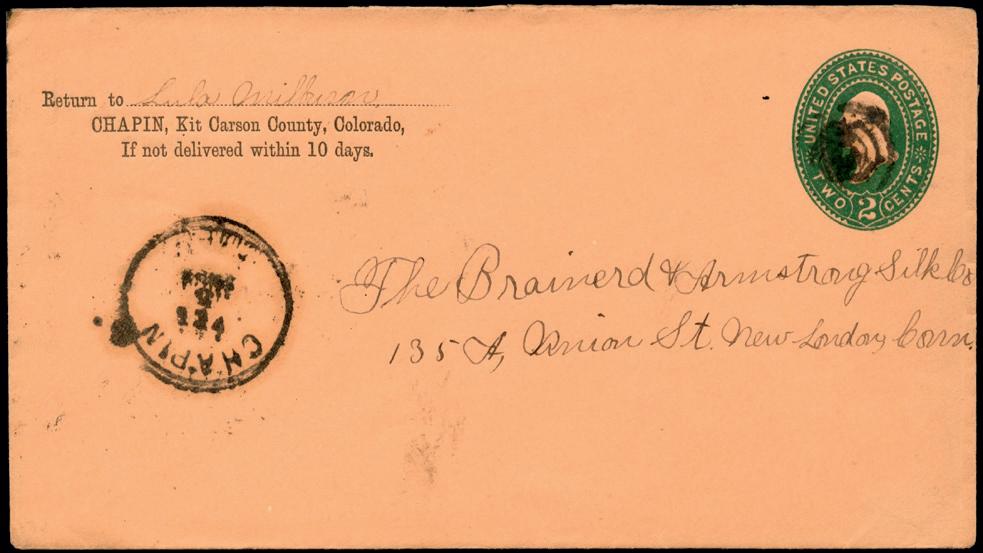 Return to Lula Wilkinson
CHAPIN, Kit Carson County, Colorado,
If not delivered within 10 days.
UNITED STATES POSTAGE
TWO 2 CENTS
CHAPIN
The Brainerd & Armstrong Silk Co
135 A, Union St. New London, Conn.